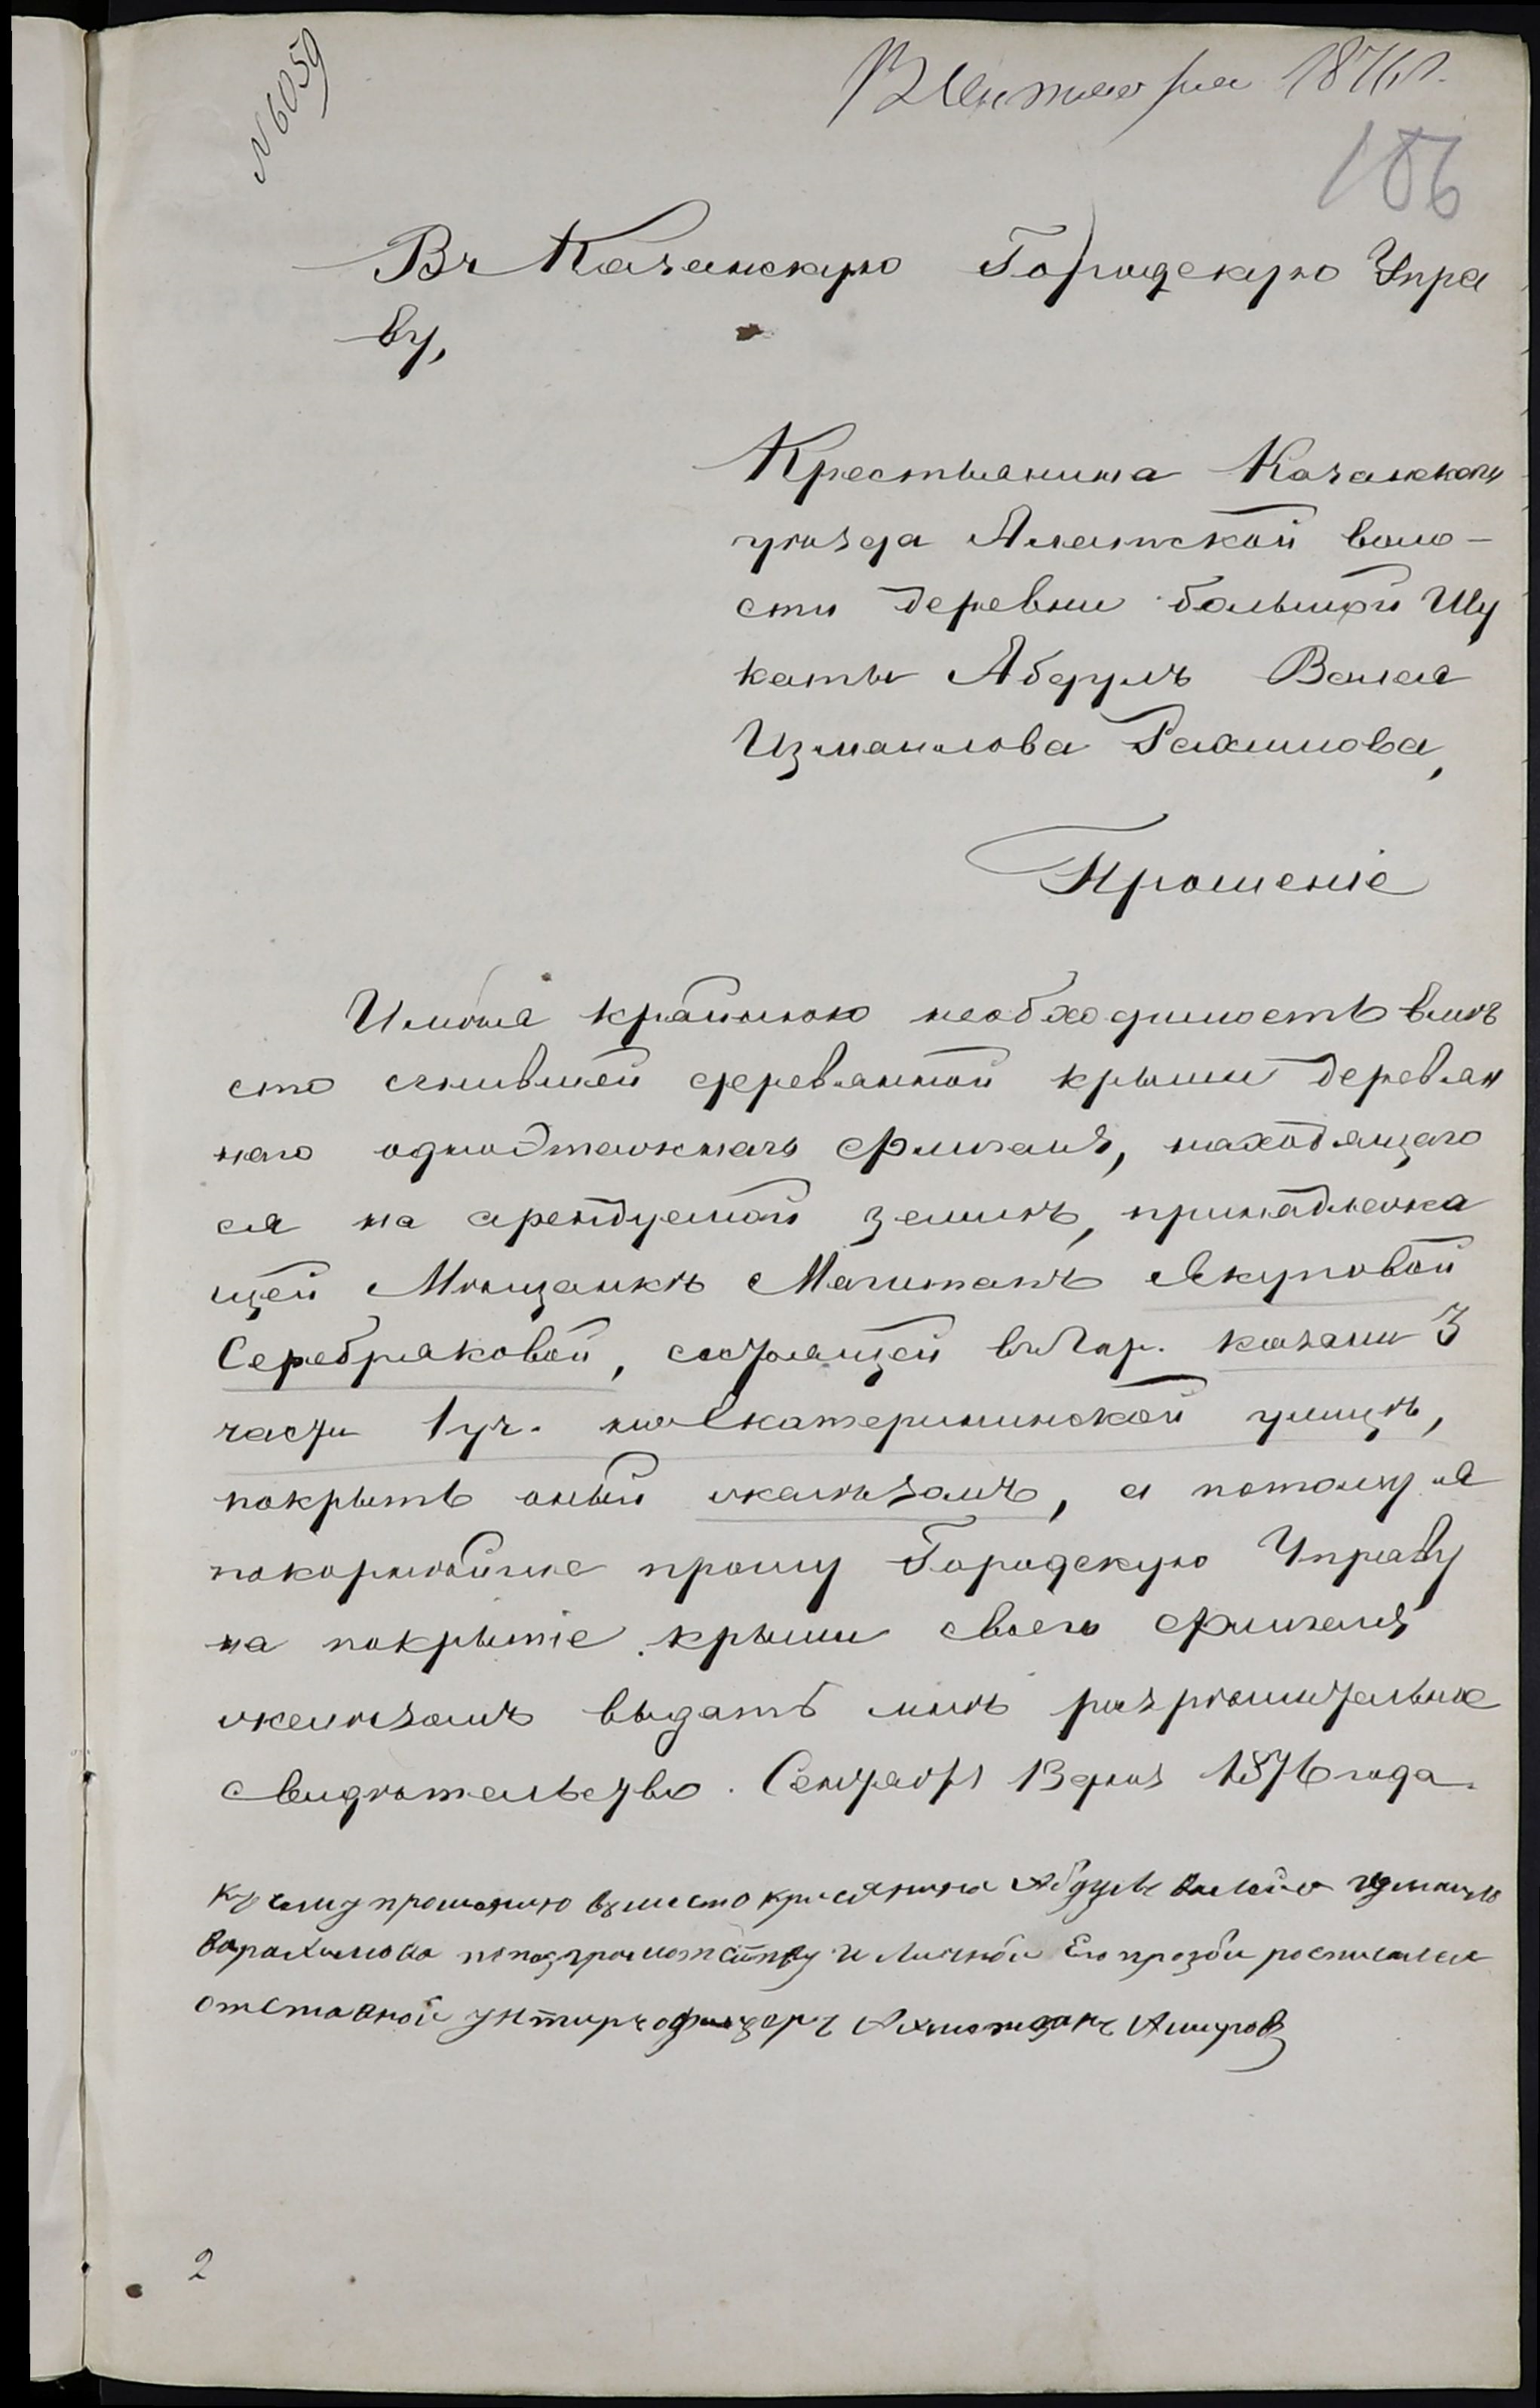 № 6059
13 Сентября 1876 г.
186
Въ Казанскую Городскую Упра
ву,
Крестьянина Казанскаго
уѣзда Алатской воло-
сти деревни большой Шу
каты Абдулъ Валея
Измаилова Рахимова,
Прошеніе
Имѣя крайнюю необходимость вмѣ
сто сгнившей деревянной крыши деревян
наго одноэтажнаго флигеля, находящаго
ся на арендуемой землѣ, принадлежа
щей Мѣщанкѣ Якуповой
Серебряковой, состоящей въ Гор. Казани 3
части 1 уч. на Екатерининской улицѣ,
покрыть оный желѣзомъ, а потому я
покорнѣйше прошу Городскую Управу
на покрытіе крыши своего флигеля
желѣзомъ выдать мнѣ разрѣшительное
свидѣтельство. Сентября 13 дня 1876 года.
Къ сему прошению вместо кресянина Абдулъ Валея Измаило
ва рахимова по безграмотству и Личной Его прозби росписался
отставной унтиръ офицеръ Ахметзянъ Амиров
2